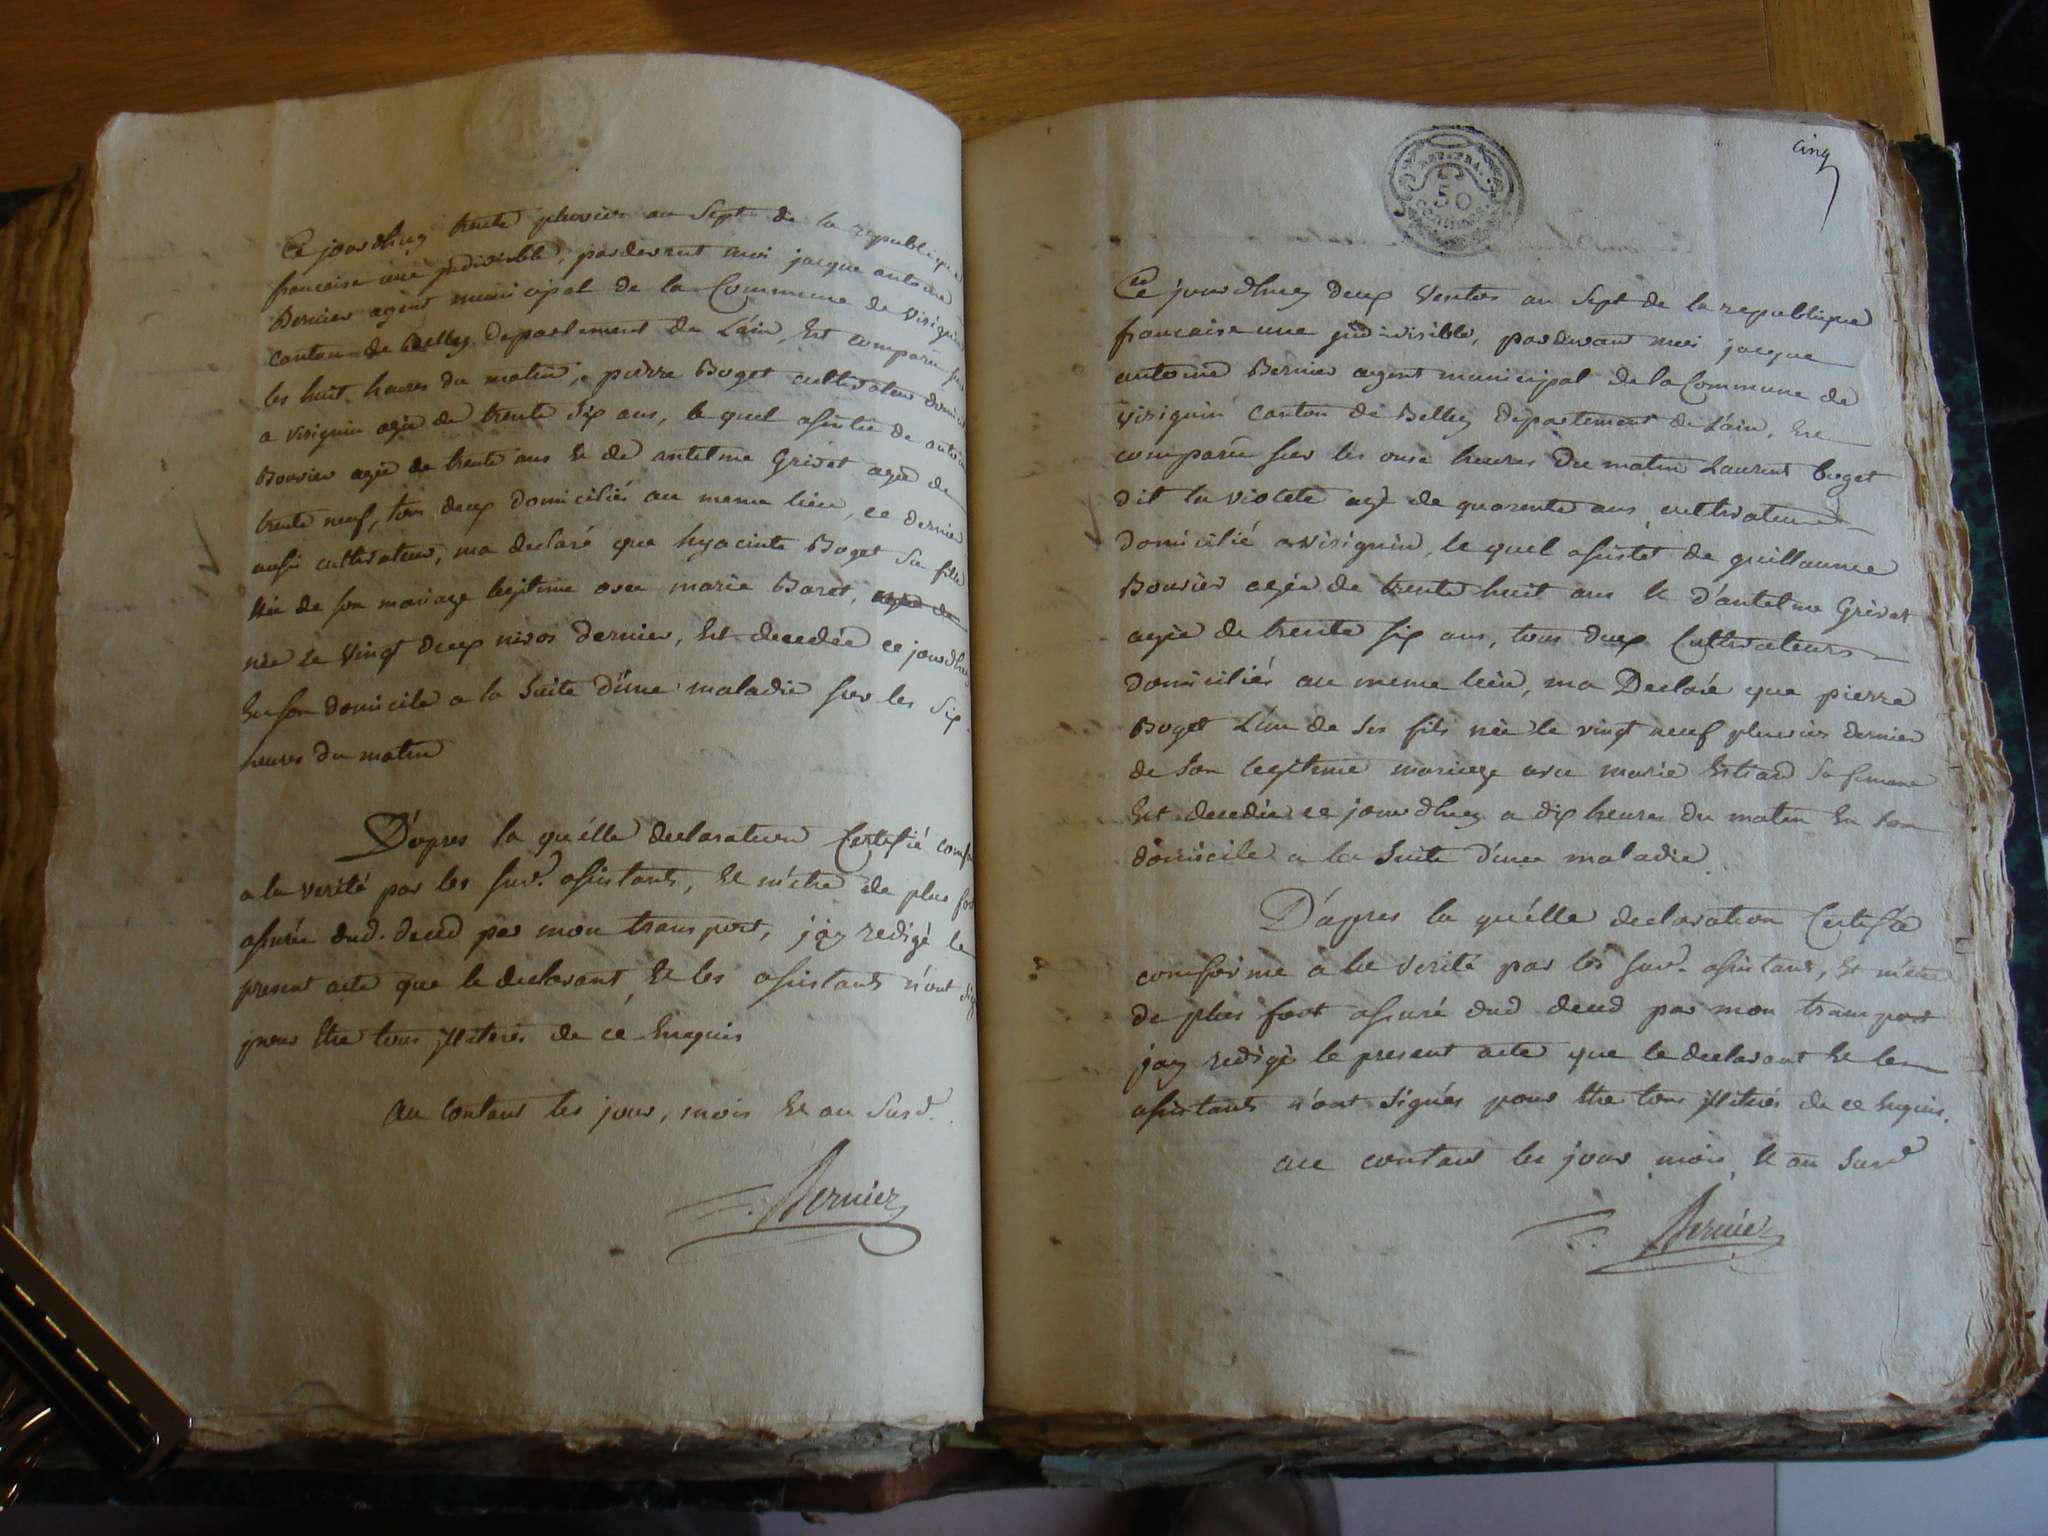 Ce jourdhuy trente pluvios an Sept de la republique
francaise une jndivisible, pardevant moi jacque antoine
Bernier agent municipal de la Commune de Virignin
canton de Belley Departement de L'ain, Est comparu sur
les huit heures du matin, pierre Boget cultivateur domicilié
a virignin agée de trente Six ans, le quel assisté de antoine
Bouvier agée de trente ans Et de antelme Grivet agée de
trente neuf, tous deux domiciliés au meme lieu, ce dernier
aussi cultivateur, ma declaré que hyacinte Boget Sa fille
Née de son mariage legitime avec marie Baret, agée de
née Le Vingt deux nivos dernier, Est decedée ce jourdhuy
En son domicile a la Suite d'une maladie sur les Six
heures du matin
D'apres la quélle declaration Certifié
a la verité par les susd. assistants, Et m'etre de plus fort
assurée dud. deced par mon transport, j'ay redigé le
present acte que le declarant, Et les assistants n'ont
pour Etre tous jlliterés de ce Enquis
au contant les jour, mois Et an Susd.
Bernier
cinq
REP. FRA.
50
CENTIMES
Ce jourdhuy deux Ventos an Sept de la republique
francaise une jndivisible, pardevant moi jacque
antoine Bernier agent municipal de la Commune de
Virignin canton de Belley Departement de L'ain, Est
comparu sur les onse heures du matin Laurent boget
dit la violete agé de quarente ans cultivateur
domicilié a Virignin, le quel assistet de guillaume
Bouvier agée de trente huit ans Et d'antelme Grivet
agée de trente six ans, tous deux Cultivateurs
domiciliés au meme lieu, ma Declaré que pierre
Boget L'un de Ses fils née le vingt neuf pluvios dernier
de Son legitime mariage avec marie Sa femme
Est decedée ce jourdhuy a dix heures du matin En Son
domicile a la Suite d'une maladie
D'apres la quélle declaration Certifiée
conforme a la verité par les susd. assistants, Et m'etre
de plus fort assuré dud deced par mon transport
jay redigé le present acte que le declarant Et les
assistants n'ont signés pour Etre tous jlliterés de ce Enquis.
au contant les jour mois Et an Susd
Bernier